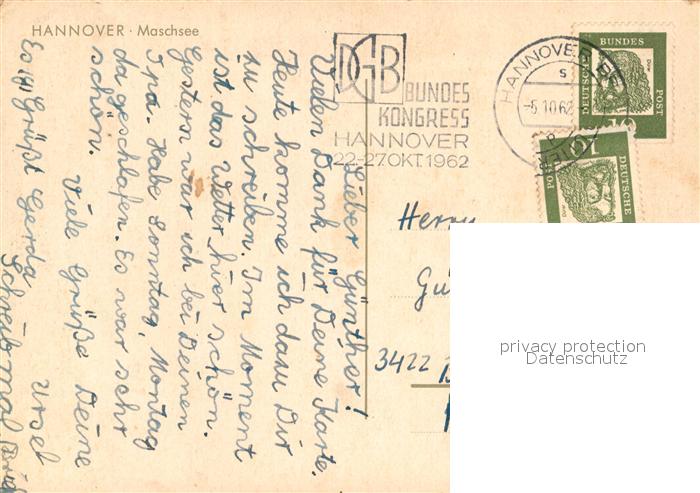 HANNOVER · Maschsee
Lieber Günther!
Vielen Dank für Deine Karte.
Heute komme ich dazu Dir
zu schreiben. Im Moment
ist das Wetter hier schön.
Gestern war ich bei Deinen
Habe Sonntag, Montag
da geschlafen. Es war sehr
schön.
Viele Grüße Deine
Ursel
Es grüßt Gerda
Schreib mal
DGB
BUNDES
KONGRESS
HANNOVER
22.-27.OKT.1962
HANNOVER
s
-5.10.62
DEUTSCHE
BUNDES
POST
15
DEUTSCHE
POST
Herrn
Gü
3422
privacy protection
Datenschutz